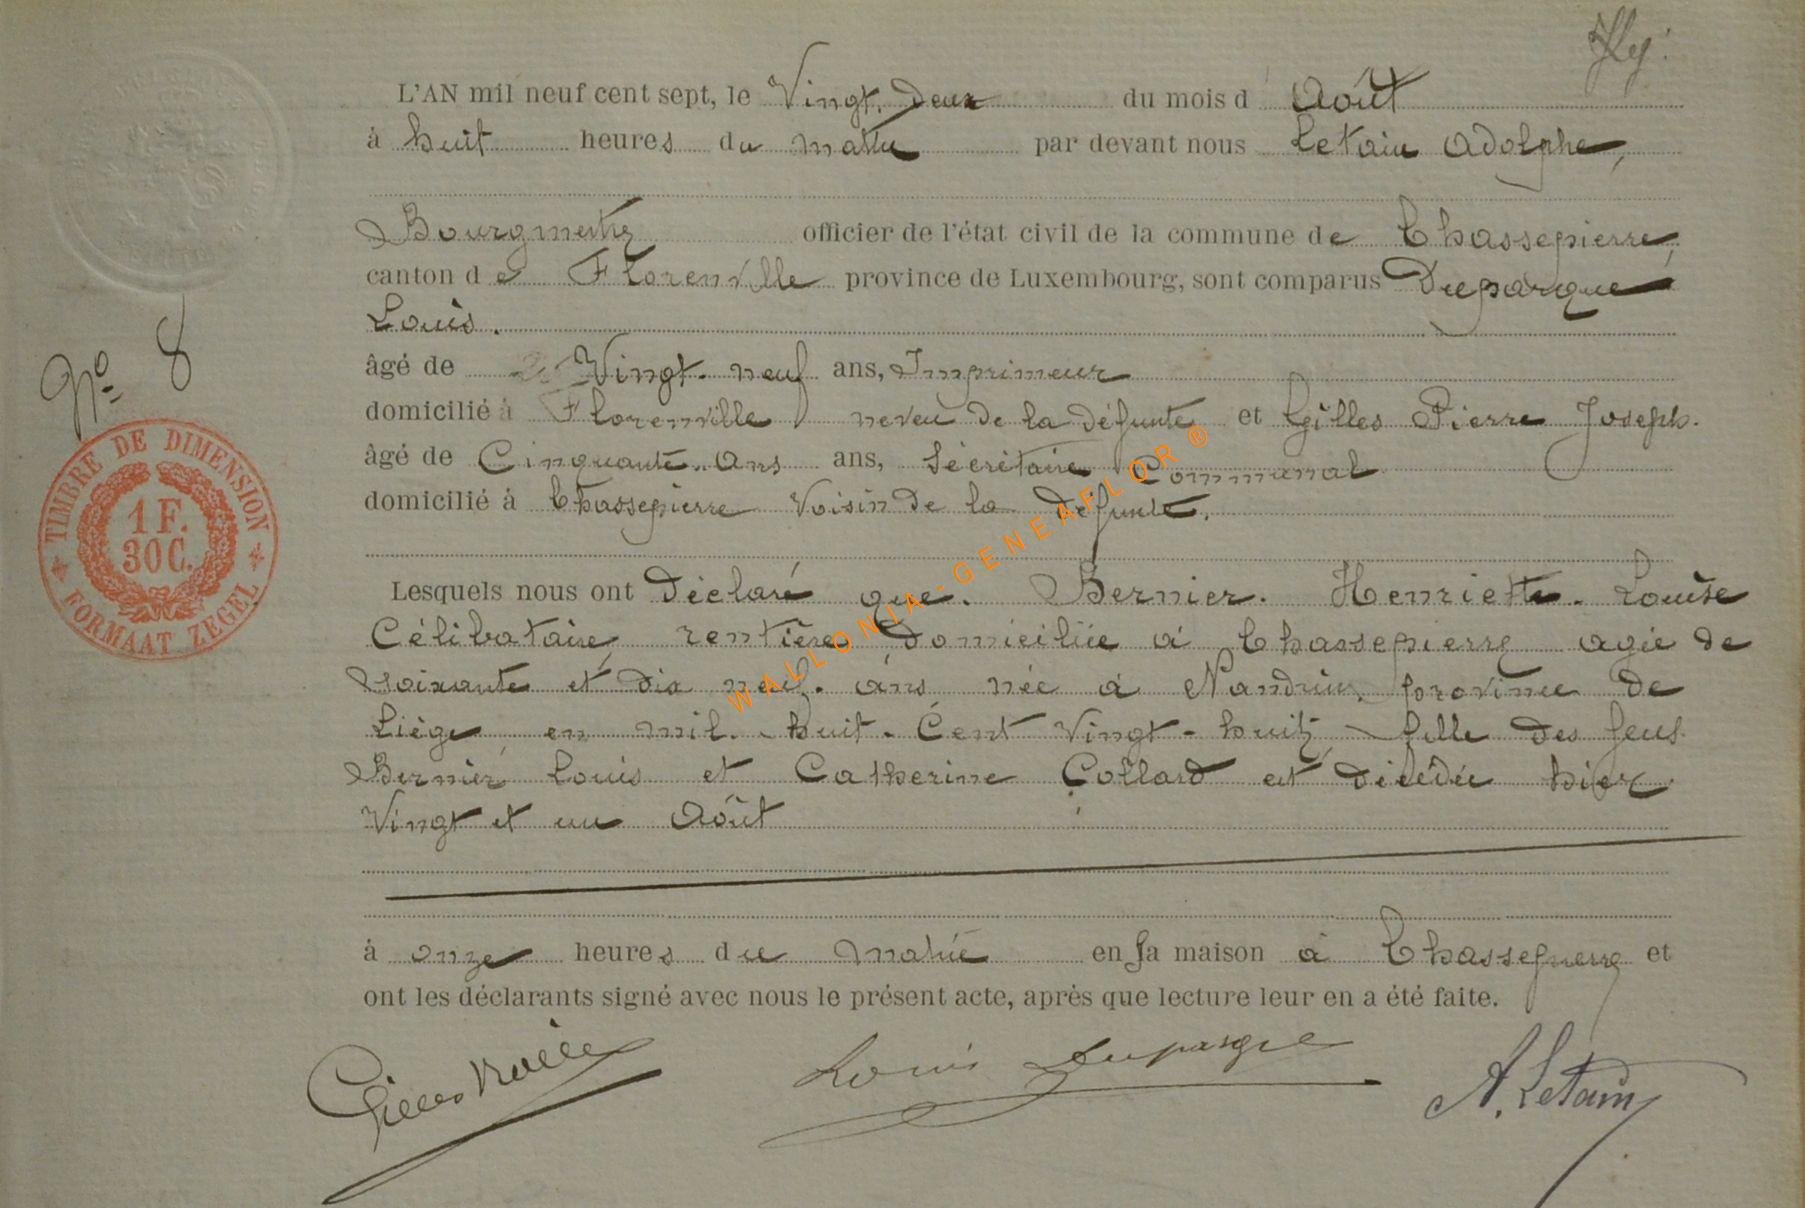 L'AN mil neuf cent sept, le Vingt. Deux du mois d Août
à huit heures du matin par devant nous Letain Adolphe,
Bourgmestre officier de l'état civil de la commune de Chassepierre,
canton de Florenville province de Luxembourg, sont comparus Duparque
Louis.
N° 8
âgé de Vingt-neuf ans, Imprimeur
domicilié à Florenville neveu de la défunte et Gilles Pierre Joseph.
âgé de Cinquante..ans ans, Sécrétaire Communal
domicilié à Chassepierre Voisin de la défunte.
TIMBRE DE DIMENSION
1 F.
30 C.
FORMAAT ZEGEL
WALLONIA-GENEAFLOR ®
Lesquels nous ont Déclaré que. Bernier. Henriette. Louise
Célibataire, rentière Domiciliée à Chassepierre agée de
Soixante et dix neuf. ans née à Nandrin, province de
Liège en mil. huit. Cent Vingt-huit, fille des feus
Bernier Louis et Catherine Collard est décédée hier
Vingt et un Août
à onze heures du matin en sa maison à Chassepierre et
ont les déclarants signé avec nous le présent acte, après que lecture leur en a été faite.
Gilles Louis Duparque A. Letain